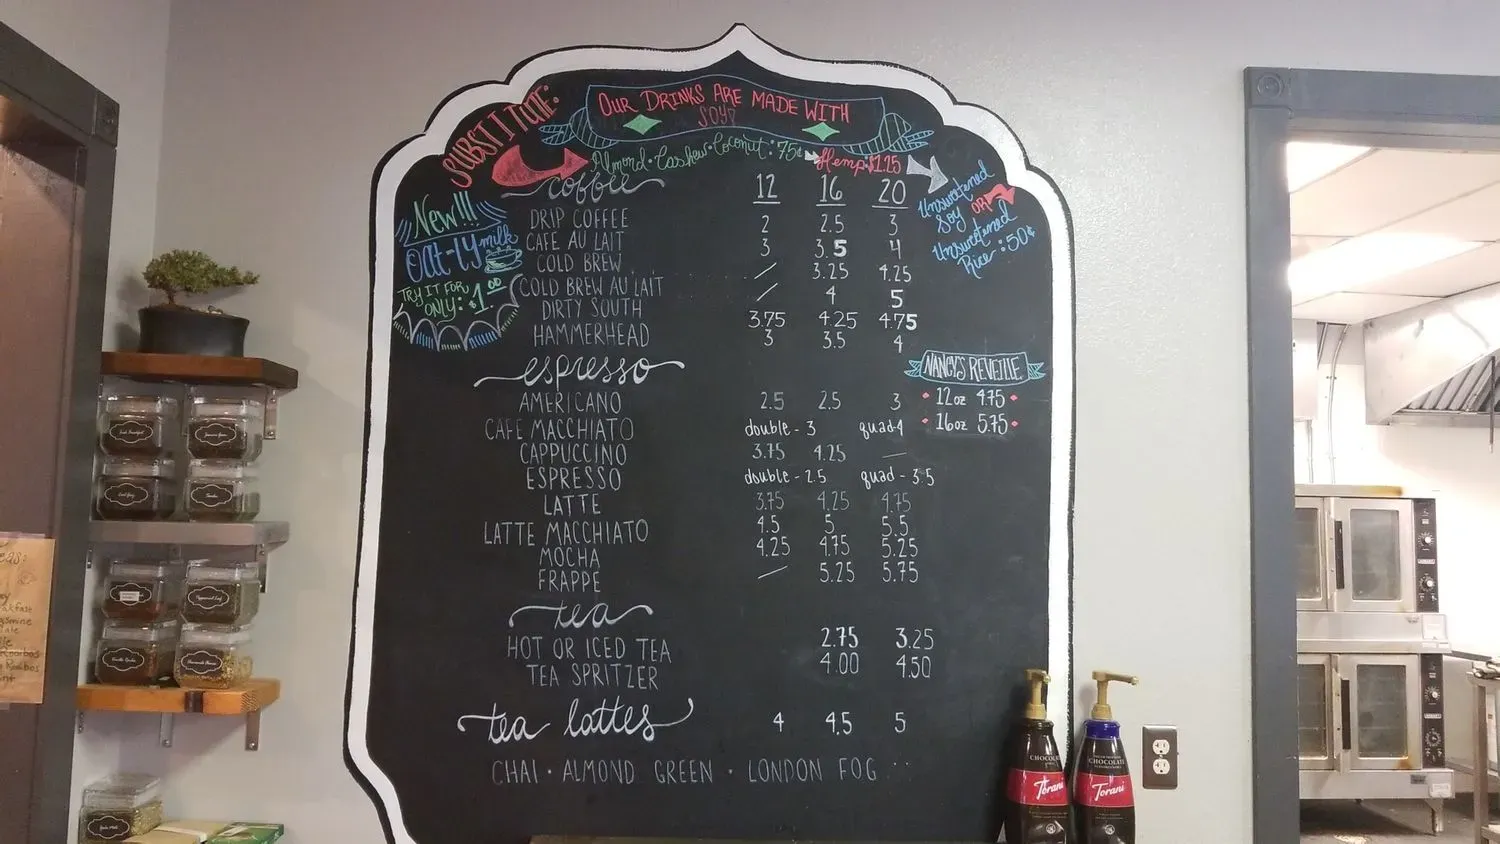 SUBSTITUTE:
OUR DRINKS ARE MADE WITH
SOY
Almond · Cashew · Coconut : 75¢
Hemp: $1.25
Unsweetened
Soy OR
Unsweetened
Rice - : 50¢
New!!!
Oat-ly milk
TRY IT FOR
ONLY: $1.00
coffee 12 16 20
DRIP COFFEE 2 2.5 3
CAFE AU LAIT 3 3.5 4
COLD BREW / 3.25 4.25
COLD BREW AU LAIT / 4 5
DIRTY SOUTH 3.75 4.25 4.75
HAMMERHEAD 3 3.5 4
NANCY'S REVEILLE
12oz 4.75
16oz 5.75
espresso
AMERICANO 2.5 2.5 3
CAFE MACCHIATO double - 3 quad-4
CAPPUCCINO 3.75 4.25 —
ESPRESSO double - 2.5 quad - 3.5
LATTE 3.75 4.25 4.75
LATTE MACCHIATO 4.5 5 5.5
MOCHA 4.25 4.75 5.25
FRAPPE / 5.25 5.75
tea
HOT OR ICED TEA 2.75 3.25
TEA SPRITZER 4.00 4.50
tea lattes 4 4.5 5
CHAI · ALMOND GREEN · LONDON FOG
CHOCOLATE
Torani
CHOCOLATE
Torani